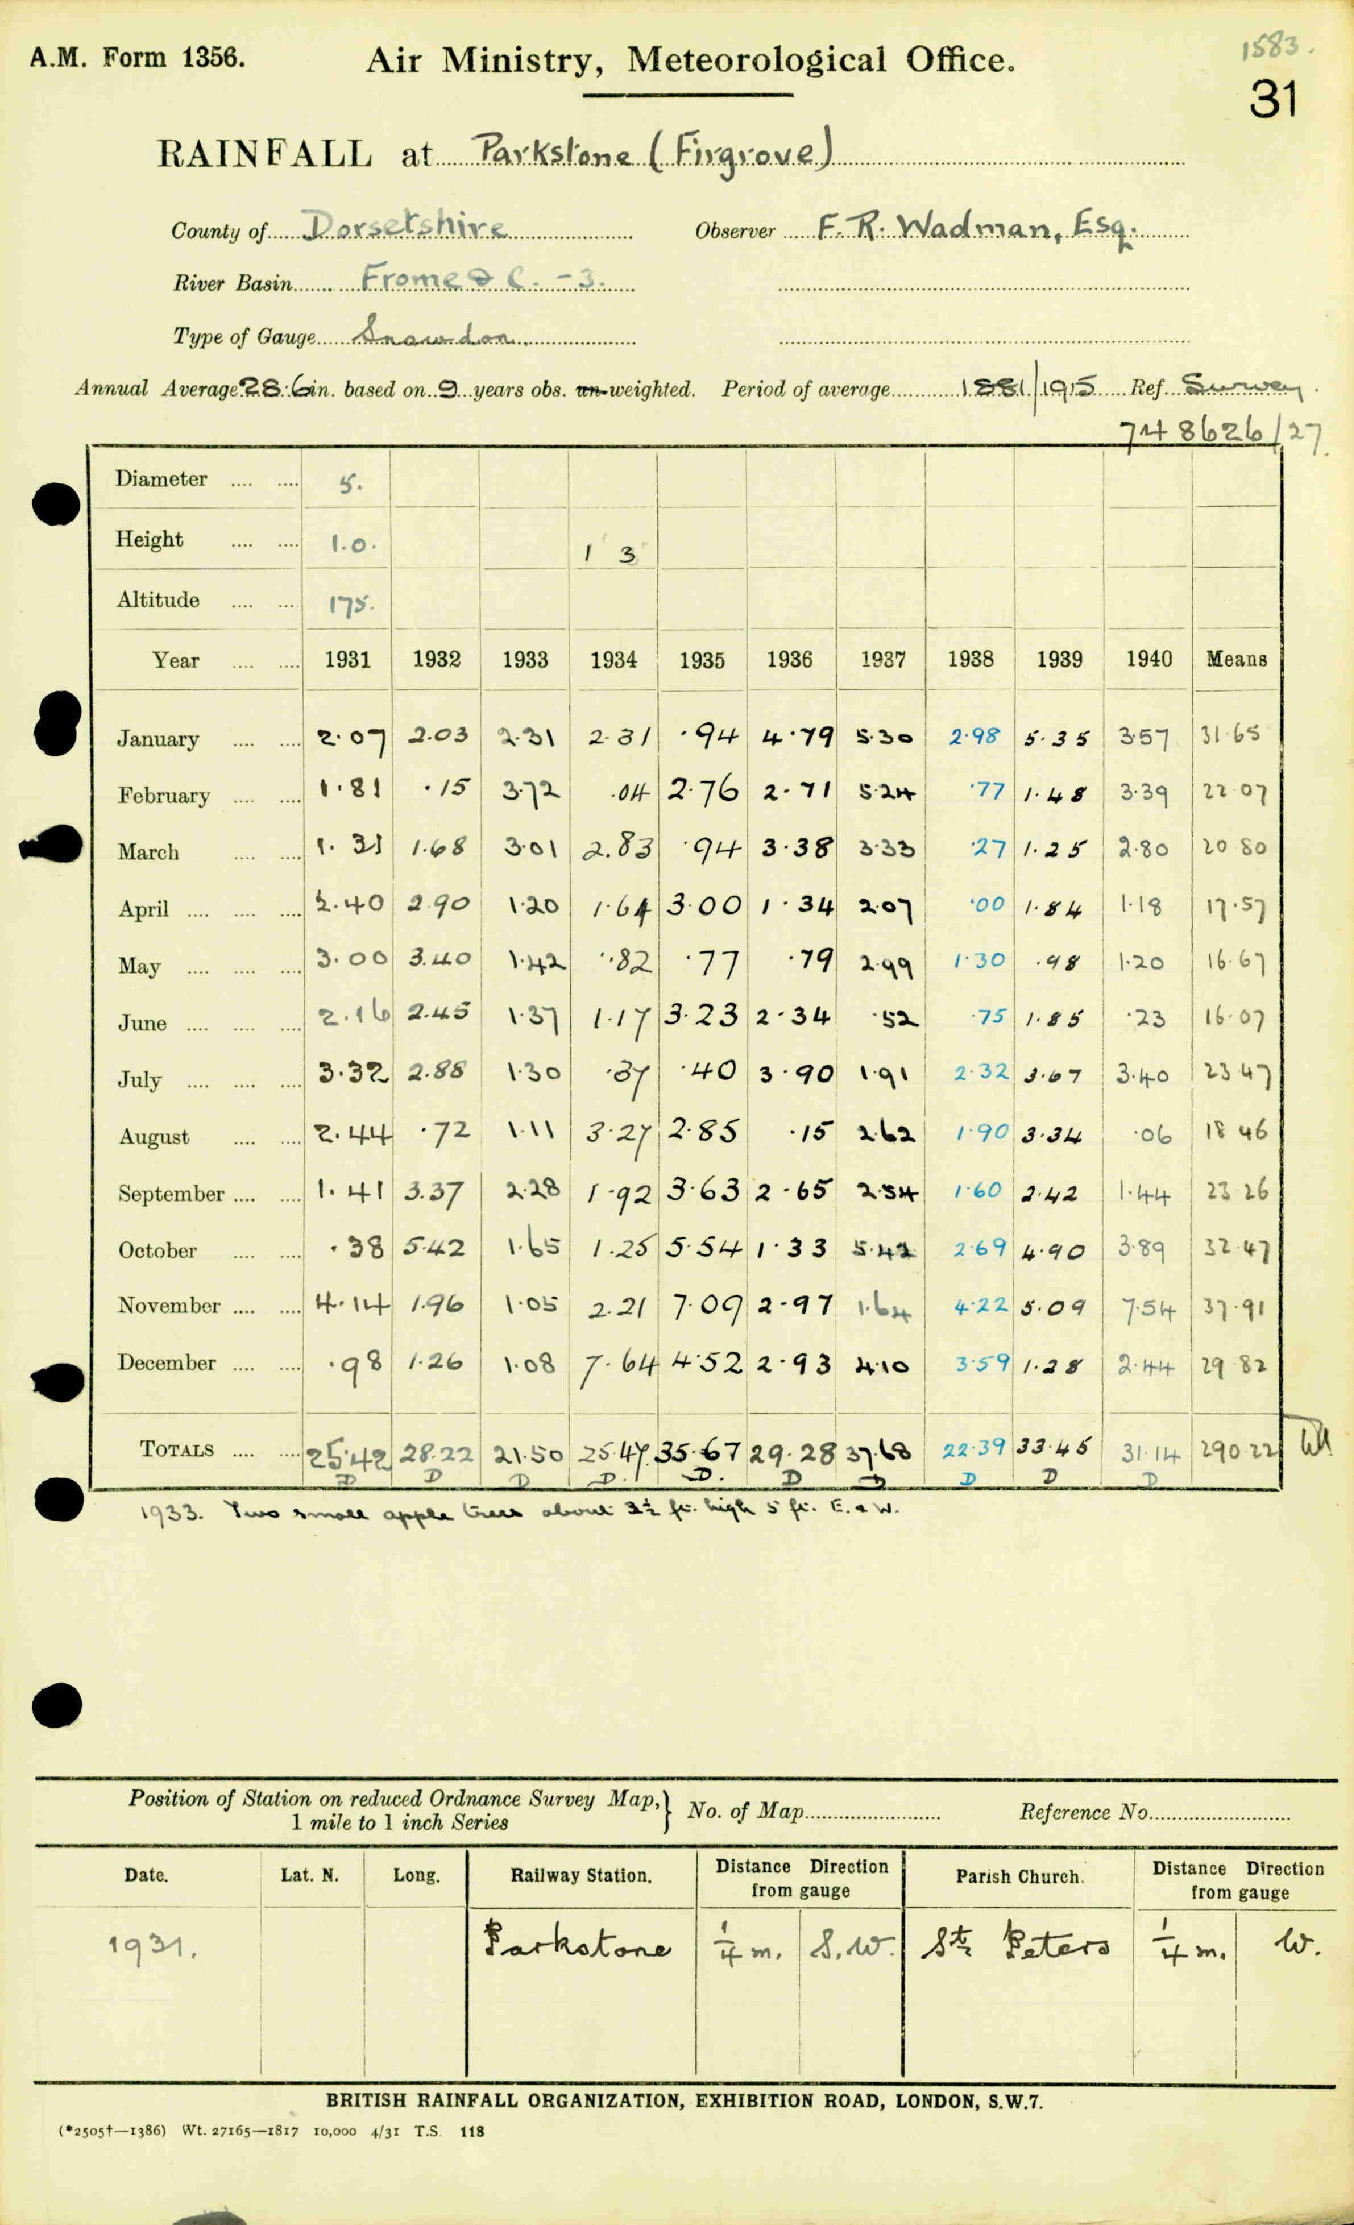 1583.
A.M. Form 1356. Air Ministry, Meteorological Office.
31
RAINFALL at Parkstone (Firgrove)
County of Dorsetshire Observer F. R. Wadman, Esq.
River Basin Frome & C. -3.
Type of Gauge Snowdon
Annual Average 28.6 in. based on 9 years obs. un-weighted. Period of average 1881/1915 Ref. Survey.
748626/27.
Diameter .... .... 5.
Height .... .... 1.0. 1 3
Altitude .... .... 175.
Year .... .... 1931 1932 1933 1934 1935 1936 1937 1938 1939 1940 Means
January .... .... 2.07 2.03 2.31 2.31 .94 4.79 5.30 2.98 5.35 3.57 31.65
February .... .... 1.81 .15 3.72 .04 2.76 2.71 5.24 .77 1.48 3.39 22.07
March .... .... 1.31 1.68 3.01 2.83 .94 3.38 3.33 .27 1.25 2.80 20.80
April .... .... .... 2.40 2.90 1.20 1.64 3.00 1.34 2.07 .00 1.84 1.18 17.57
May .... .... .... 3.00 3.40 1.42 .82 .77 .79 2.99 1.30 .98 1.20 16.67
June .... .... .... 2.16 2.45 1.37 1.17 3.23 2.34 .52 .75 1.85 .23 16.07
July .... .... .... 3.32 2.88 1.30 .37 .40 3.90 1.91 2.32 3.67 3.40 23.47
August .... .... 2.44 .72 1.11 3.27 2.85 .15 2.62 1.90 3.34 .06 18.46
September .... .... 1.41 3.37 2.28 1.92 3.63 2.65 2.54 1.60 2.42 1.44 23.26
October .... .... .38 5.42 1.65 1.25 5.54 1.33 5.42 2.69 4.90 3.89 32.47
November .... .... 4.14 1.96 1.05 2.21 7.09 2.97 1.64 4.22 5.09 7.54 37.91
December .... .... .98 1.26 1.08 7.64 4.52 2.93 4.10 3.59 1.28 2.44 29.82
TOTALS .... .... 25.42 28.22 21.50 25.47 35.67 29.28 37.68 22.39 33.45 31.14 290.22
D D D D. D. D D D D D
1933. Two small apple trees about 3½ ft. high 5 ft. E. & W.
Position of Station on reduced Ordnance Survey Map, } No. of Map Reference No.
1 mile to 1 inch Series
Date. Lat. N. Long. Railway Station. Distance Direction from gauge Parish Church. Distance Direction from gauge
1931. Parkstone ¼ m. S.W. St. Peters ¼ m. W.
BRITISH RAINFALL ORGANIZATION, EXHIBITION ROAD, LONDON, S.W.7.
(*2505†—1386) Wt. 27165—1817 10,000 4/31 T.S. 118